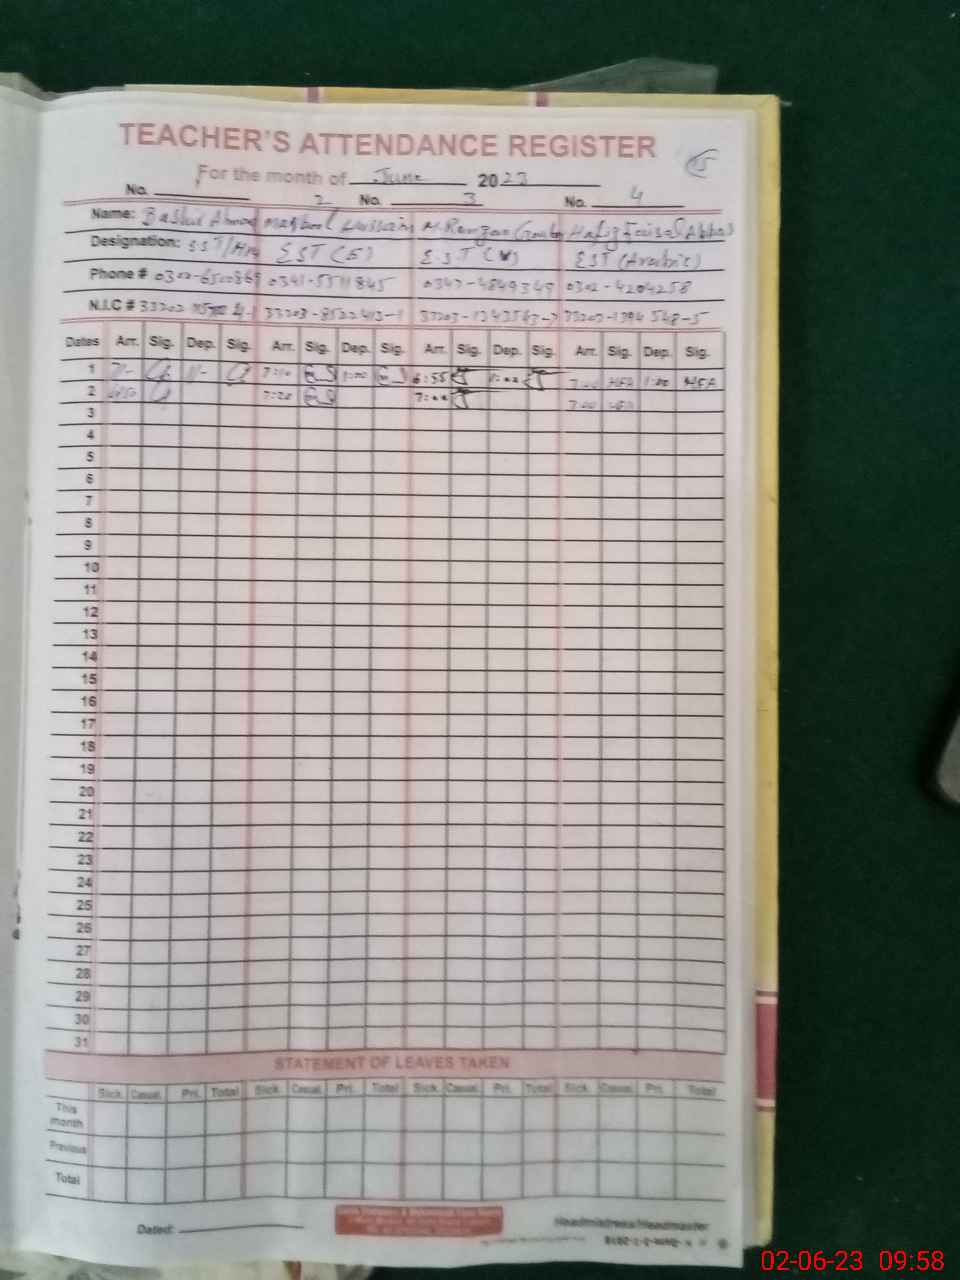 TEACHER'S ATTENDANCE REGISTER
15
For the month of June 2023
No. 2 No. 3 No. 4
Name: Bashir Ahmad Maqbool Hussain M. Ramzan Hafiz Faisal Abbas
Designation: SST/ EST (E) E.S.T (V) EST (Arabic)
Phone # 0341-5511845 0347-4849349 0302-4204258
N.I.C # 33203-8522413-1 33203-1394548-5
Dates Arr. Sig. Dep. Sig. Arr. Sig. Dep. Sig. Arr. Sig. Dep. Sig. Arr. Sig. Dep. Sig.
1 7/- 11/- 7:10 1:00 6:55 1:00 7:00 HFA 1:00 HFA
2 6:50 7:20 7:00 7:00 HFA
3
4
5
6
7
8
9
10
11
12
13
14
15
16
17
18
19
20
21
22
23
24
25
26
27
28
29
30
31
STATEMENT OF LEAVES TAKEN
Sick. Casual. Pri. Total Sick. Casual. Pri. Total Sick. Casual. Pri. Total Sick. Casual. Pri. Total
This month
Previous
Total
Dated: Headmistress/Headmaster
02-06-23 09:58